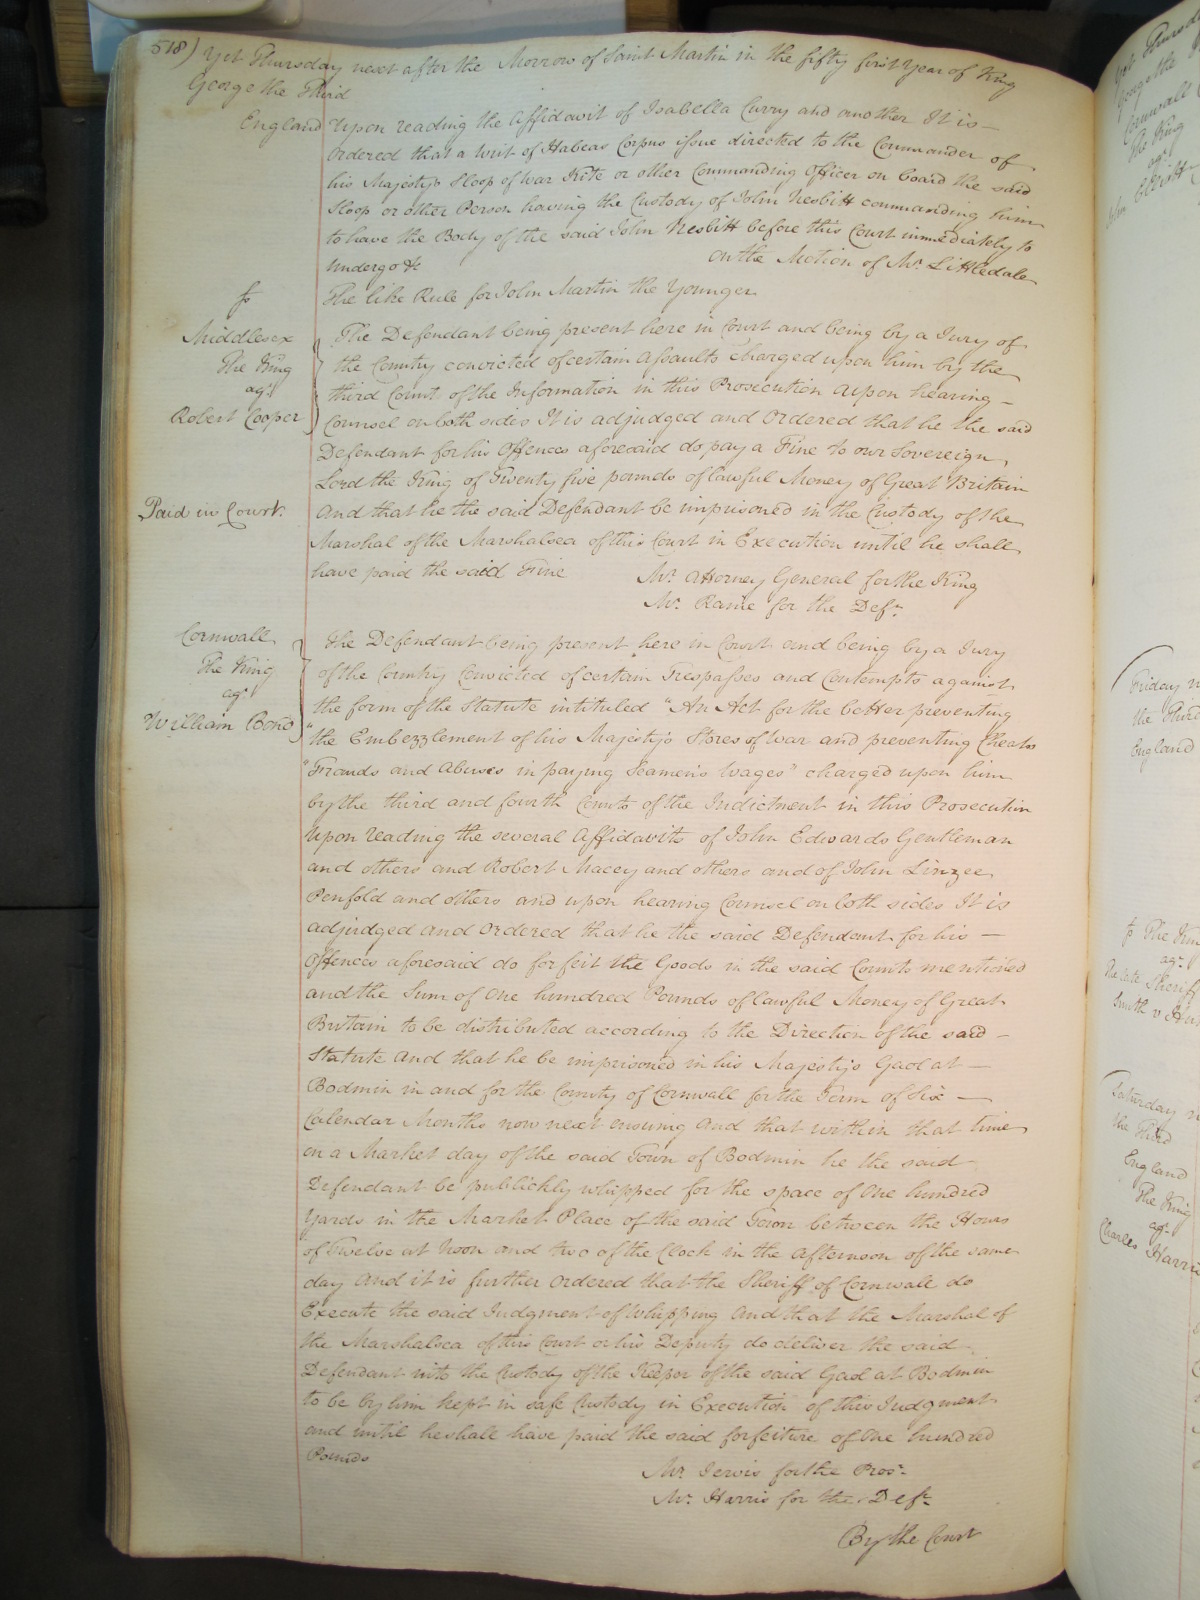 518) Yet Thursday next after the Morrow of Saint Martin in the fifty first Year of King
George the Third
England Upon reading the Affidavit of Isabella Curry and another It is —
Ordered that a Writ of Habeas Corpus issue directed to the Commander of
his Majestys Sloop of War Kite or other Commanding Officer on board the said
Sloop or other Person having the Custody of John Nesbitt commanding him
to have the Body of the said John Nesbitt before this Court immediately to
undergo &c On the Motion of Mr. Littledale
The like Rule for John Martin the Younger
Middlesex
The King
agt.
Robert Cooper
The Defendant being present here in Court and being by a Jury of
the Country convicted of certain Assaults charged upon him by the
third Count of the Information in this Prosecution Upon hearing —
Counsel on both sides It is adjudged and Ordered that he the said
Defendant for his Offences aforesaid do pay a Fine to our Sovereign
Lord the King of Twenty five pounds of lawful Money of Great Britain
Paid in Court.
And that he the said Defendant be imprisoned in the Custody of the
Marshal of the Marshalsea of this Court in Execution until he shall
have paid the said Fine Mr. Attorney General for the King
Mr. Raine for the Deft.
Cornwall
The King
agt.
William Bond
The Defendant being present here in Court and being by a Jury
of the Country Convicted of certain Trespasses and Contempts against
the form of the Statute intituled "An Act for the better preventing
"the Embezzlement of his Majestys Stores of War and preventing Cheats
"Frauds and Abuses in paying Seamens Wages" charged upon him
by the third and fourth Counts of the Indictment in this Prosecution
Upon reading the several Affidavits of John Edwards Gentleman
and others and Robert Macey and others and of John Linzee
Penfold and others and upon hearing Counsel on both sides It is
adjudged and Ordered that he the said Defendant for his —
Offences aforesaid do forfeit the Goods in the said Counts mentioned
and the Sum of One hundred Pounds of lawful Money of Great
Britain to be distributed according to the Direction of the said —
Statute And that he be imprisoned in his Majestys Gaol at —
Bodmin in and for the County of Cornwall for the Term of Six —
Calendar Months now next ensuing And that within that time
on a Market day of the said Town of Bodmin he the said
Defendant be publickly whipped for the space of One hundred
Yards in the Market Place of the said Town between the Hours
of Twelve at Noon and two of the Clock in the Afternoon of the same
day And it is further Ordered that the Sheriff of Cornwall do
Execute the said Judgment of Whipping And that the Marshal of
the Marshalsea of this Court or his Deputy do deliver the said
Defendant into the Custody of the Keeper of the said Gaol at Bodmin
to be by him kept in safe Custody in Execution of this Judgment
and until he shall have paid the said forfeiture of One hundred
Pounds Mr. Jervis for the Prosr.
Mr. Harris for the Deft.
By the Court
Friday
the Third
England
The King
agt.
The late Sheriff
Smith v
Saturday
the Third
England
The King
agt.
Charles Harris